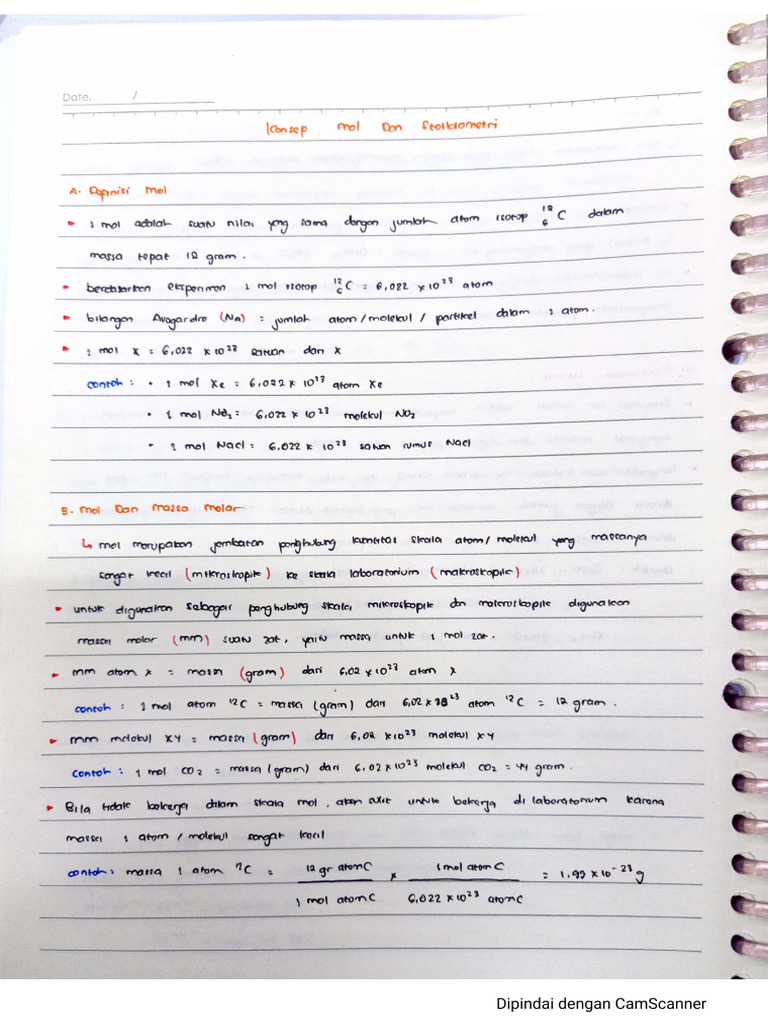 Date. /
Konsep mol Dan Stoikiometri
A. Depinisi mol
1 mol adalah suatu nilai yang sama dengan jumlah atom isotop ¹²₆C dalam
massa tepat 12 gram.
berdasarkan eksperimen 1 mol isotop ¹²₆C = 6,022 × 10²³ atom
bilangan Avogardro (NA) = jumlah atom/molekul / partikel dalam 1 atom.
1 mol X = 6,022 × 10²³ satuan dari X
contoh : • 1 mol Xe = 6,022 × 10²³ atom Xe
• 1 mol NO₂ = 6,022 × 10²³ molekul NO₂
• 1 mol NaCl = 6.022 × 10²³ satuan rumus NaCl
B. mol Dan massa molar
↳ mol merupakan jembatan penghubung kuantitas skala atom/molekul yang massanya
sangat kecil (mikroskopik) ke skala laboratorium (makroskopik)
untuk digunakan sebagai penghubung skala mikroskopik dan makroskopik digunakan
massa molar (mm) suatu zat, yaitu massa untuk 1 mol zat.
mm atom X = massa (gram) dari 6.02 × 10²³ atom X
contoh : 1 mol atom ¹²C = massa (gram) dari 6,02 × 10²³ atom ¹²C = 12 gram.
mm molekul XY = massa (gram) dari 6,02 × 10²³ molekul XY
contoh : 1 mol CO₂ = massa (gram) dari 6,02 × 10²³ molekul CO₂ = 44 gram.
Bila tidak bekerja dalam skala mol, akan sulit untuk bekerja di laboratorium karena
massa 1 atom / molekul sangat kecil
contoh : massa 1 atom ¹²C = 12 gr atom C / 1 mol atom C × 1 mol atom C / 6,022 × 10²³ atom C = 1.99 × 10⁻²³ g
Dipindai dengan CamScanner